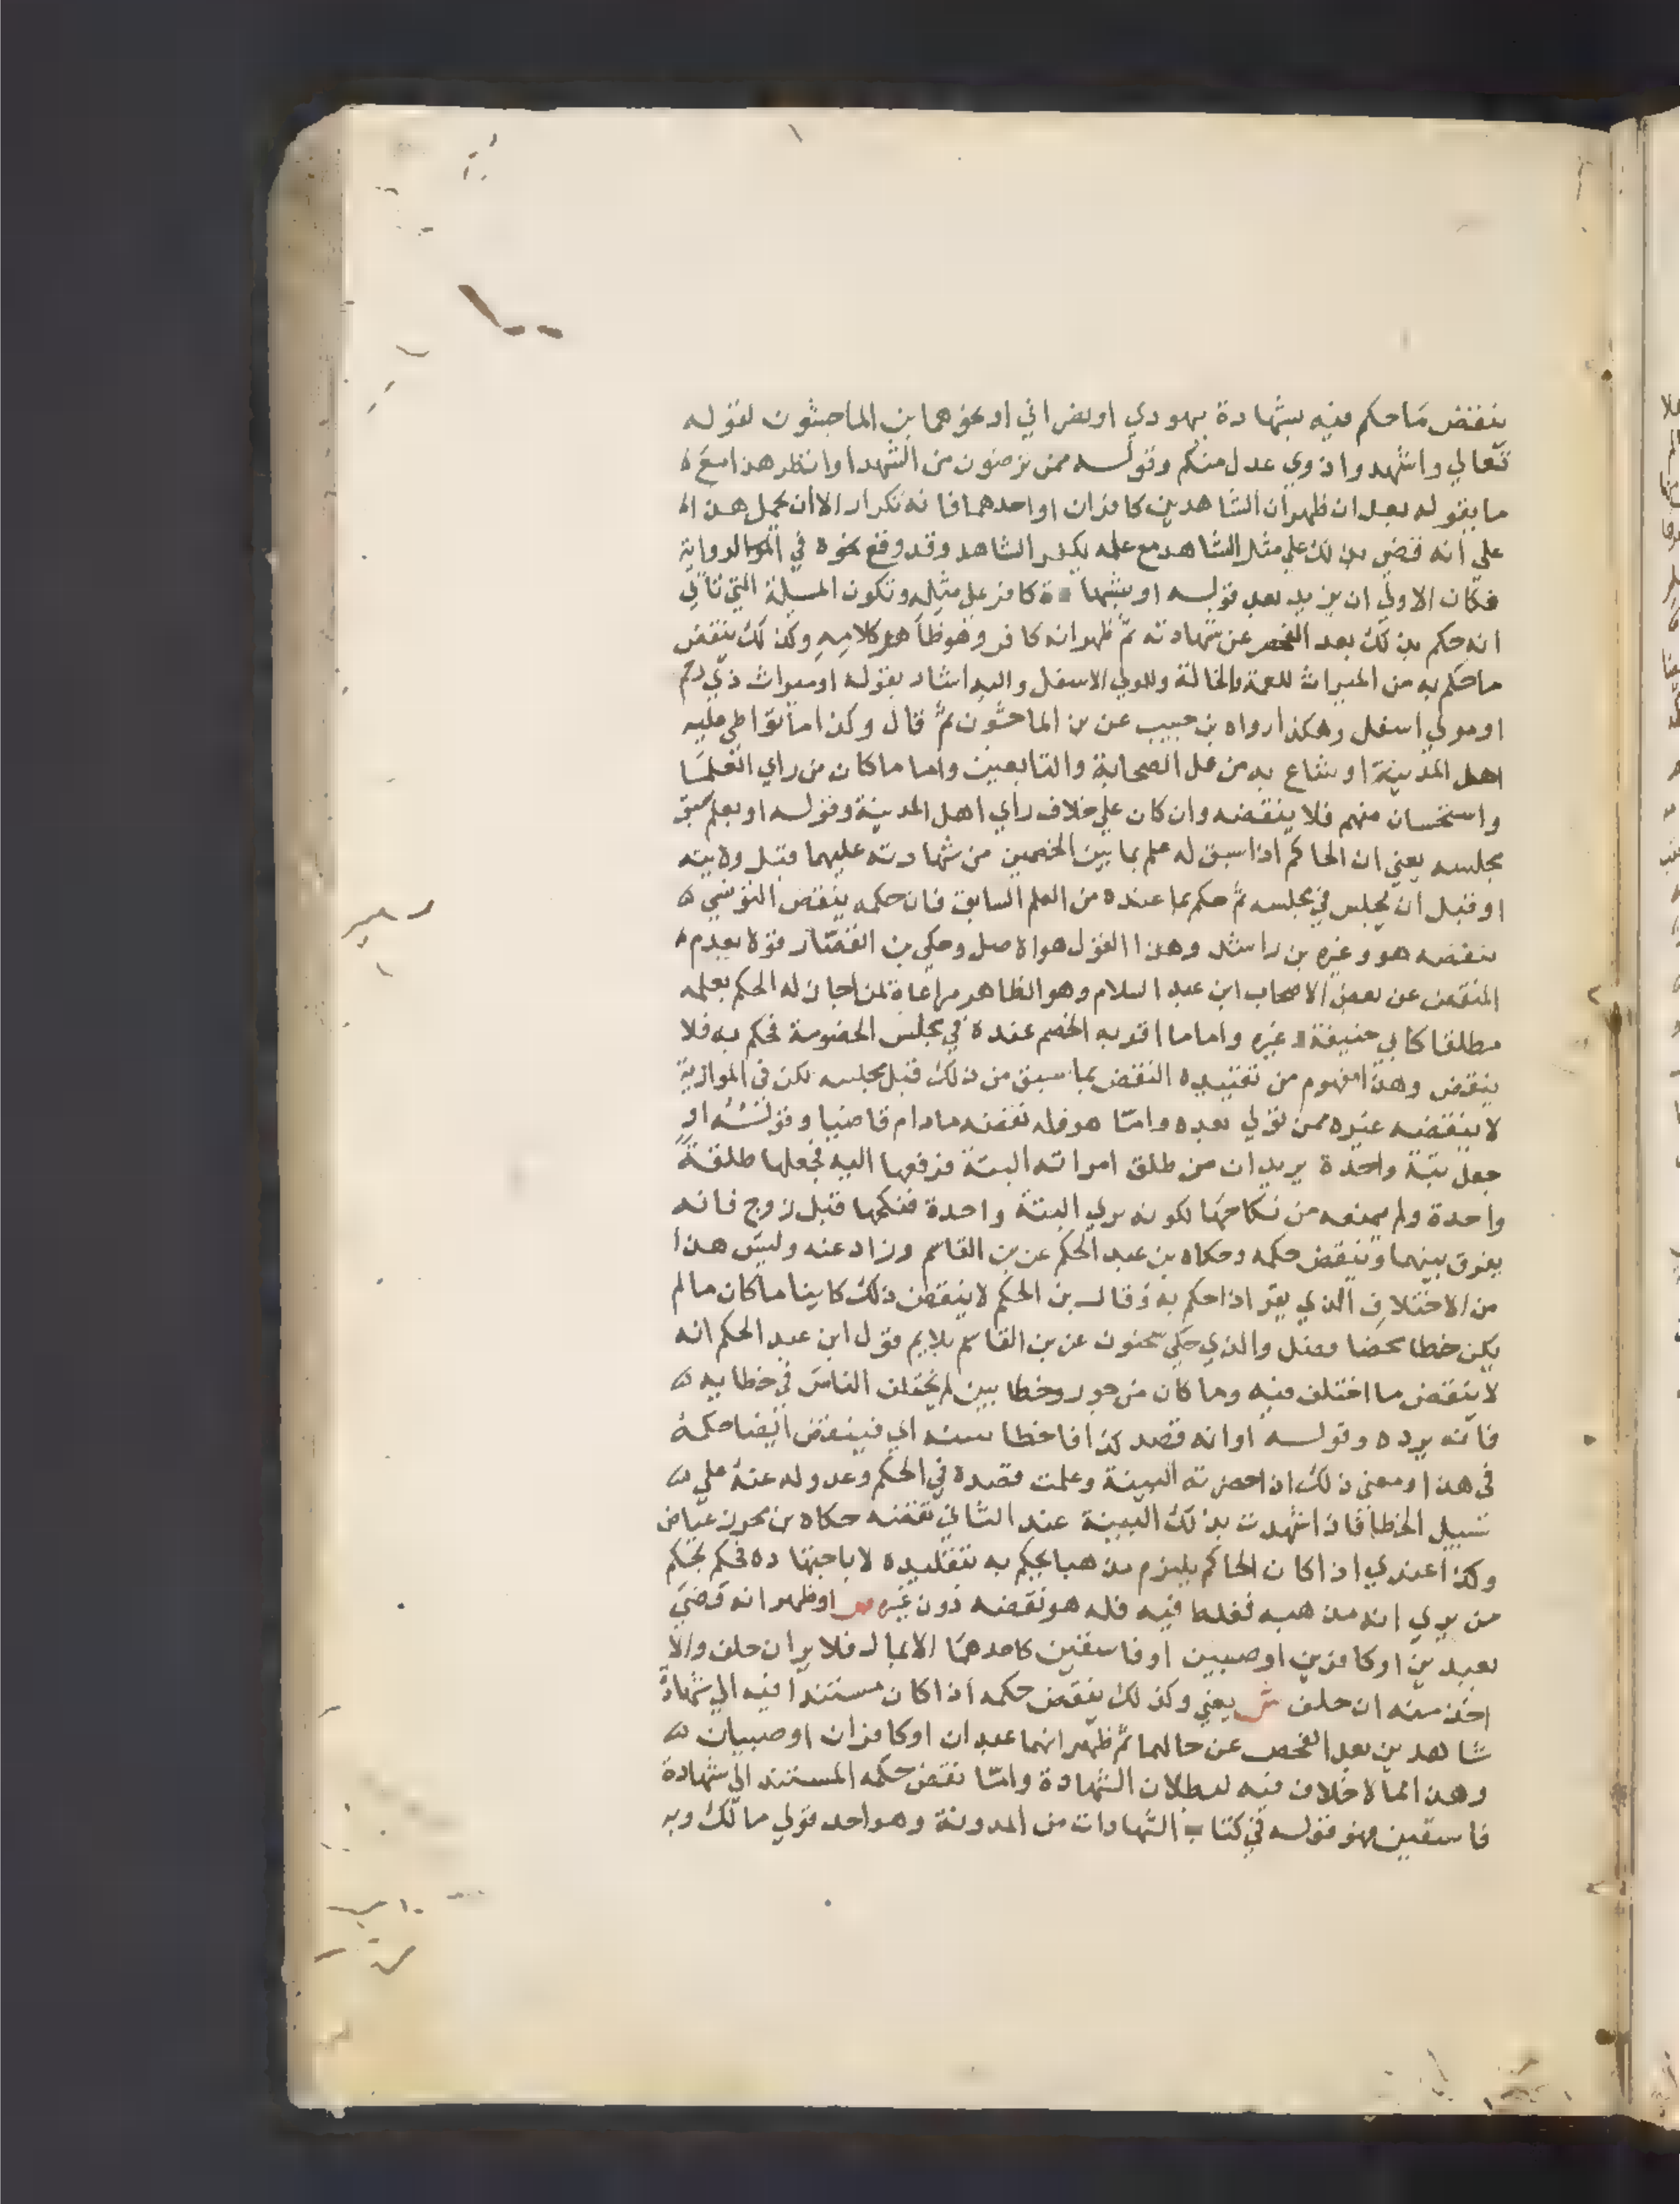 ينقض ما حكم فيه بشهادة يهودي او نصراني او نحوهما بن الماجشون لقوله
تعالي واشهدوا ذوي عدل منكم وقوله ممن ترضون من الشهدا وانظر هذا مع
ما يقوله بعد ان ظهر ان الشاهدين كافران او احدهما فانه تكرار الا ان يحمل هذا
علي انه قضي بذلك علي مثل الشاهد مع علمه بكفر الشاهد وقد وقع نحوه في الرواية
فكان الاولي ان يزيد بعد قوله او بشهادة كافر علي مثله وتكون المسيلة التي تاتي
انه حكم بذلك بعد الفحص عن شهادته ثم ظهر انه كافر وهو ظاهر كلامه وكذلك ينقض
ما حكم به من الميراث للعمة والخالة وللمولي الاسفل واليه اشار بقوله او ميراث ذي رحم
او مولي اسفل وهكذا رواه بن حبيب عن بن الماجشون ثم قال وكذا ما تواطي عليه
اهل المدينة او شاع به من عمل الصحابة والتابعين واما ما كان من راي العلما
واستحسان منهم فلا ينقضه وان كان علي خلاف راي اهل المدينة وقوله او بعلم سبق
مجلسه يعني ان الحاكم اذا سبق له علم بما بين الخصمين من شهادته عليهما قبل ولايته
او قبل ان يجلس في مجلسه ثم حكم بما عنده من العلم السابق فان حكمه ينقض التونسي
ينقضه هو وغيره بن راشد وهذا القول هو الاصل وحكي بن القصار قولا بعدم
النقض عن بعض الاصحاب ابن عبد السلام وهو الظاهر مراعاة لمن اجاز له الحكم بعلمه
مطلقا كابي حنيفة وغيره واما ما اقر به الخصم عنده في مجلس الخصومة فحكم به فلا
ينقض وهذا مفهوم من تقييده النقض بما سبق من ذلك قبل مجلسه لكن في الموازية
لا ينقضه غيره ممن تولي بعده واما هو فله نقضه ما دام قاضيا وقوله او
جعل بتة واحدة يريد ان من طلق امراته البتة فرفعها اليه فجعلها طلقة
واحدة ولم يمنعه من نكاحها لكونه يري البتة واحدة فنكحها قبل زوج فانه
يفرق بينهما وينقض حكمه وحكاه بن عبد الحكم عن بن القاسم وزاد عنه وليس هذا
من الاختلاف الذي يقر اذا حكم به وقال بن الحكم لا ينقض ذلك كاينا ما كان ما لم
يكن خطا محضا وقيل والذي حكي سحنون عن بن القاسم يلايم قول ابن عبد الحكم انه
لا ينقض ما اختلف فيه وما كان من جور وخطا بين لم يختلف الناس في خطا به
فانه يرده وقوله او انه قصد كذا فاخطا ببينة اي فينقض ايضا حكمه
في هذا ومعني ذلك اذا حضرته البينة وعلمت قصده في الحكم وعدوله عنه علي
سبيل الخطا فاذا شهدت بذلك البينة عند الثاني نقضه حكاه بن محرز عياض
وكذا عندي اذا كان الحاكم يلتزم مذهبا يحكم به بتقليده لا باجتهاده فحكم بحكم
من يري انه مذهبه فغلط فيه فله هو نقضه دون غيره ص او ظهر انه قضي
بعبدين او كافرين او صبيين او فاسقين كاحدهما الا بمال فلا يرد ان حلف والا
اخذ منه ان حلف ش يعني وكذلك ينقض حكمه اذا كان مستندا فيه الي شهادة
شاهدين بعد الفحص عن حالهما ثم ظهر انهما عبدان او كافران او صبيان
وهذا مما لا خلاف فيه لبطلان الشهادة واما نقض حكمه المستند الي شهادة
فاسقين فهو قوله في كتاب الشهادات من المدونة وهو احد قولي مالك وبه